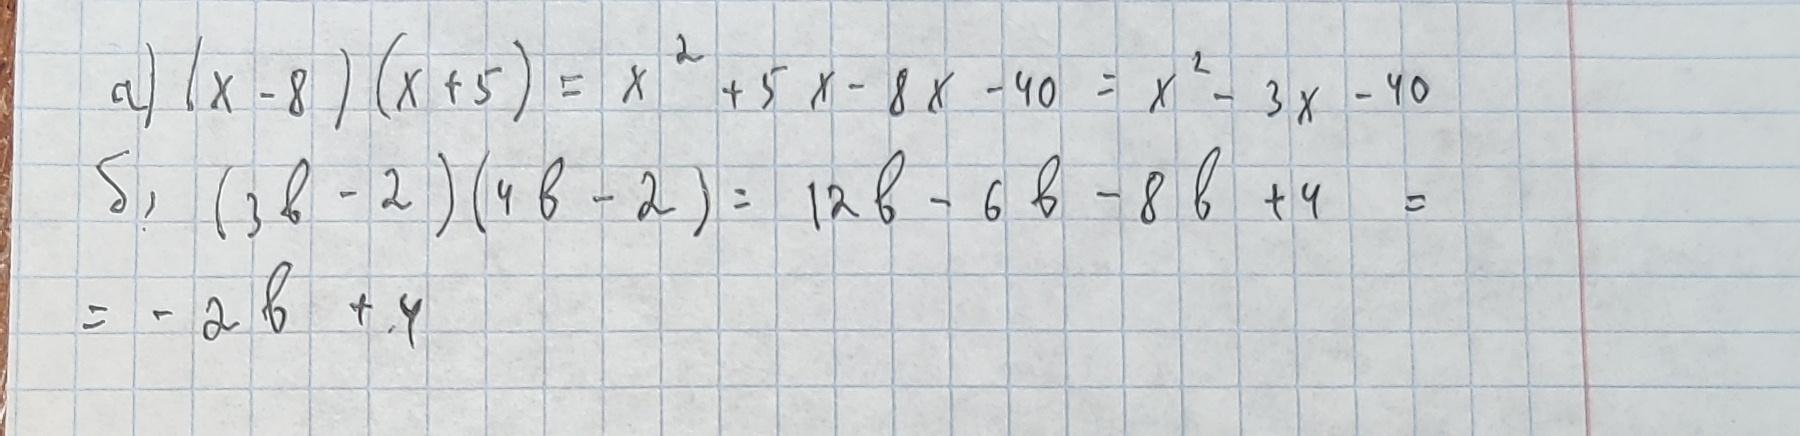 а) (x - 8) (x + 5) = x² + 5x - 8x - 40 = x² - 3x - 40
б) (3b - 2)(4b - 2) = 12b - 6b - 8b + 4 =
= - 2b + 4